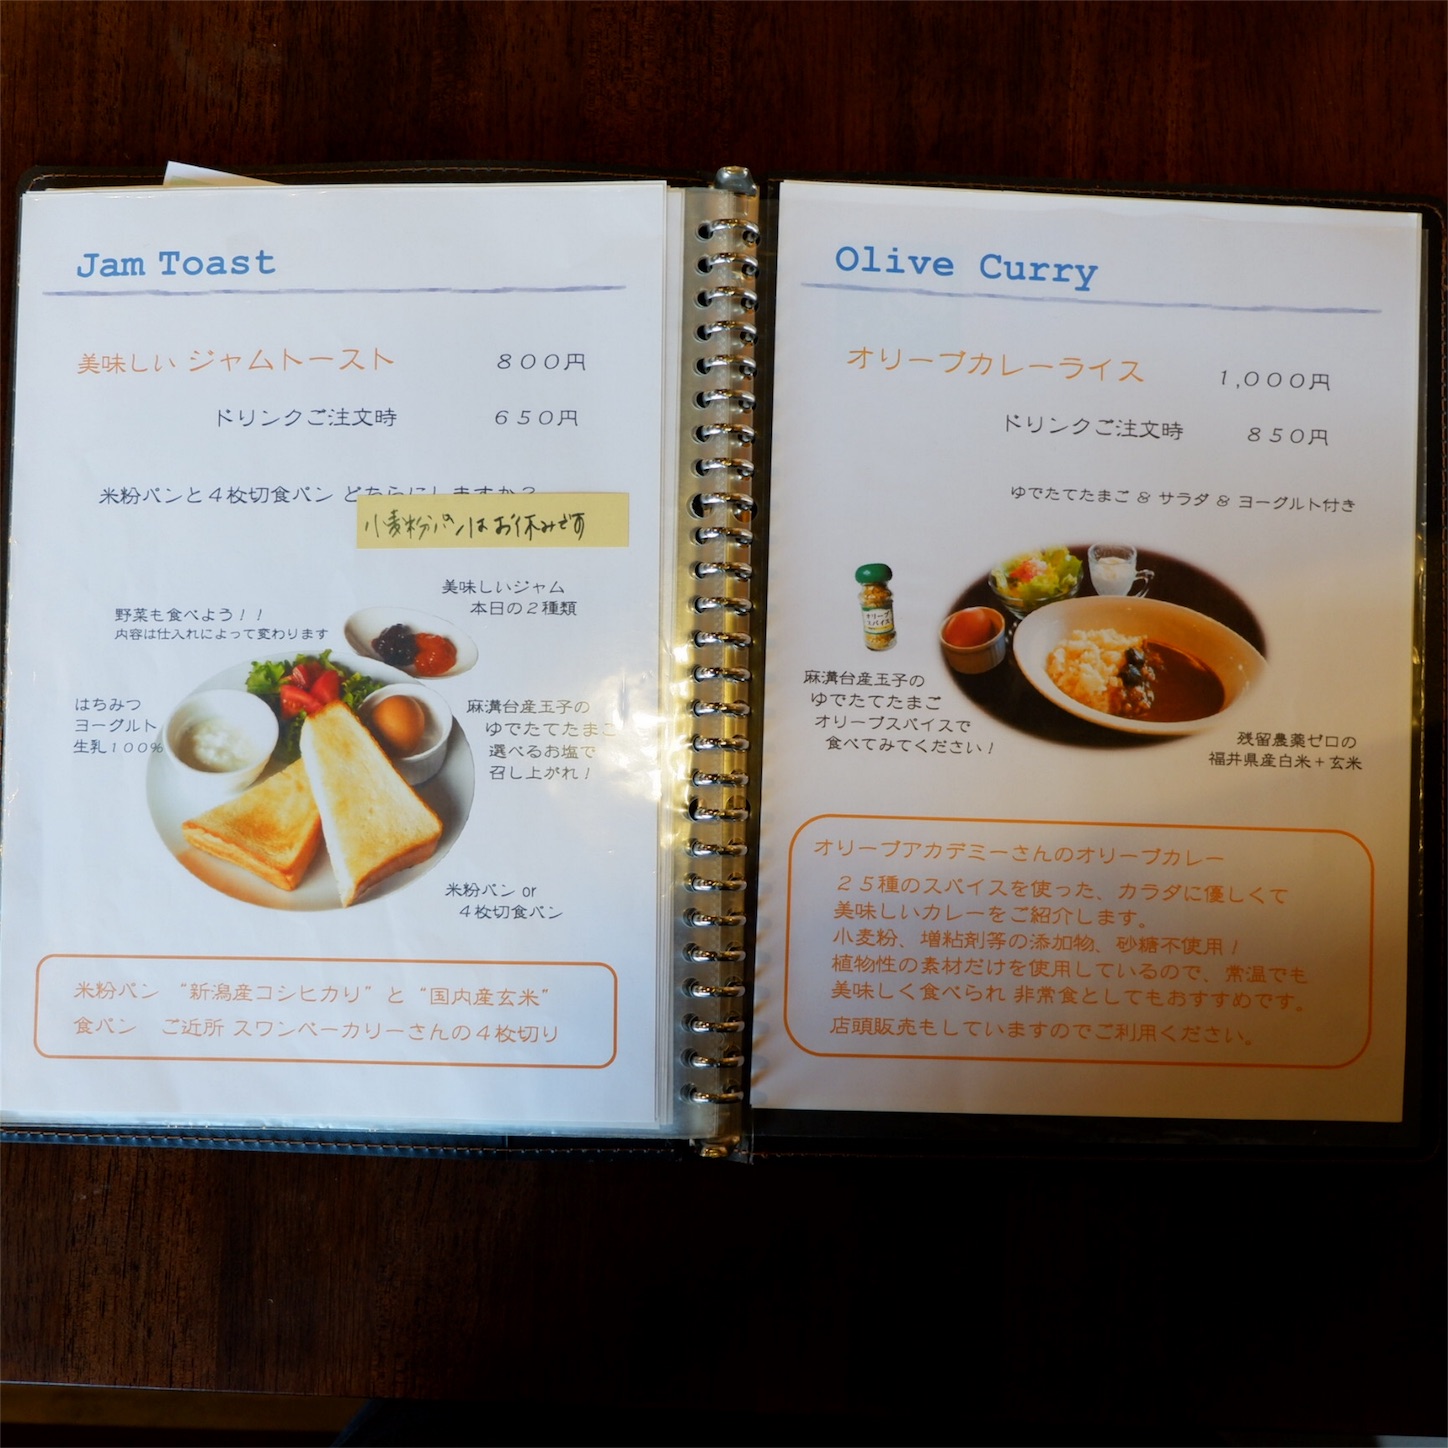 Jam Toast
美味しい ジャムトースト 800円
ドリンクご注文時 650円
米粉パンと4枚切食パン どちらにしますか?
小麦粉パンはお休みです
美味しいジャム
本日の2種類
野菜も食べよう!!
内容は仕入れによって変わります
はちみつ
ヨーグルト
生乳100%
麻溝台産玉子の
ゆでたてたまご
選べるお塩で
召し上がれ!
米粉パン or
4枚切食パン
米粉パン “新潟産コシヒカリ” と “国内産玄米”
食パン ご近所 スワンベーカリーさんの4枚切り
Olive Curry
オリーブカレーライス 1,000円
ドリンクご注文時 850円
ゆでたてたまご & サラダ & ヨーグルト付き
オリーブ
スパイス
麻溝台産玉子の
ゆでたてたまご
オリーブスパイスで
食べてみてください!
残留農薬ゼロの
福井県産白米+玄米
オリーブアカデミーさんのオリーブカレー
25種のスパイスを使った、カラダに優しくて
美味しいカレーをご紹介します。
小麦粉、増粘剤等の添加物、砂糖不使用!
植物性の素材だけを使用しているので、常温でも
美味しく食べられ 非常食としてもおすすめです。
店頭販売もしていますのでご利用ください。